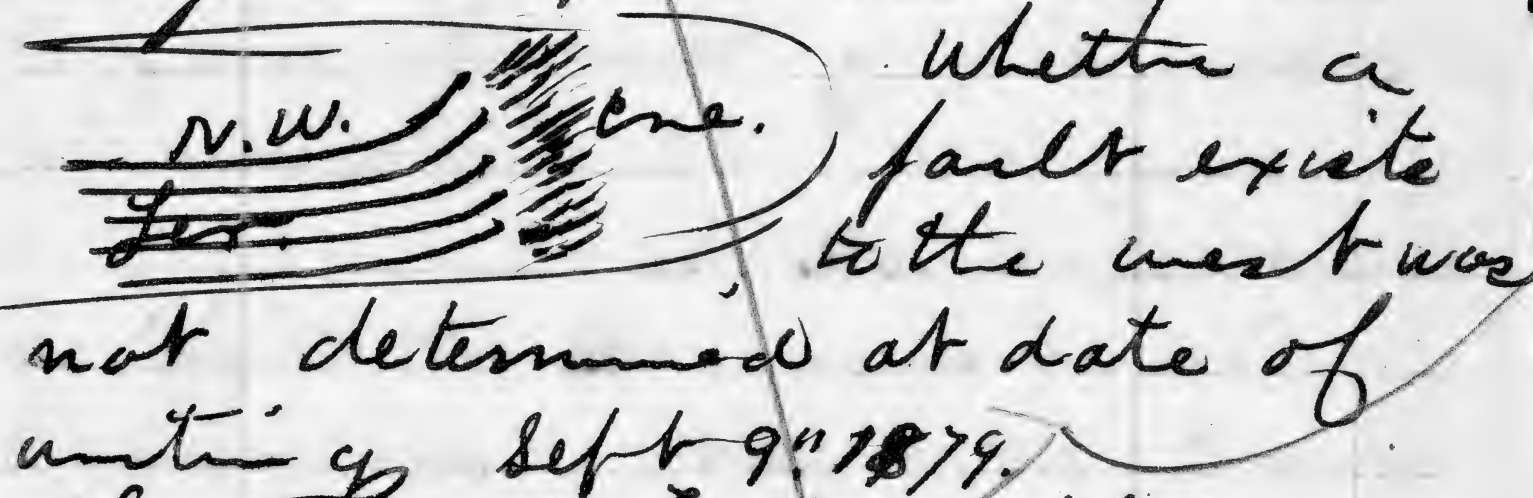 Whether a
N.W. cne.
fault exists
Ter.
to the west was
not determined at date of
writing Sept 9" 1879.